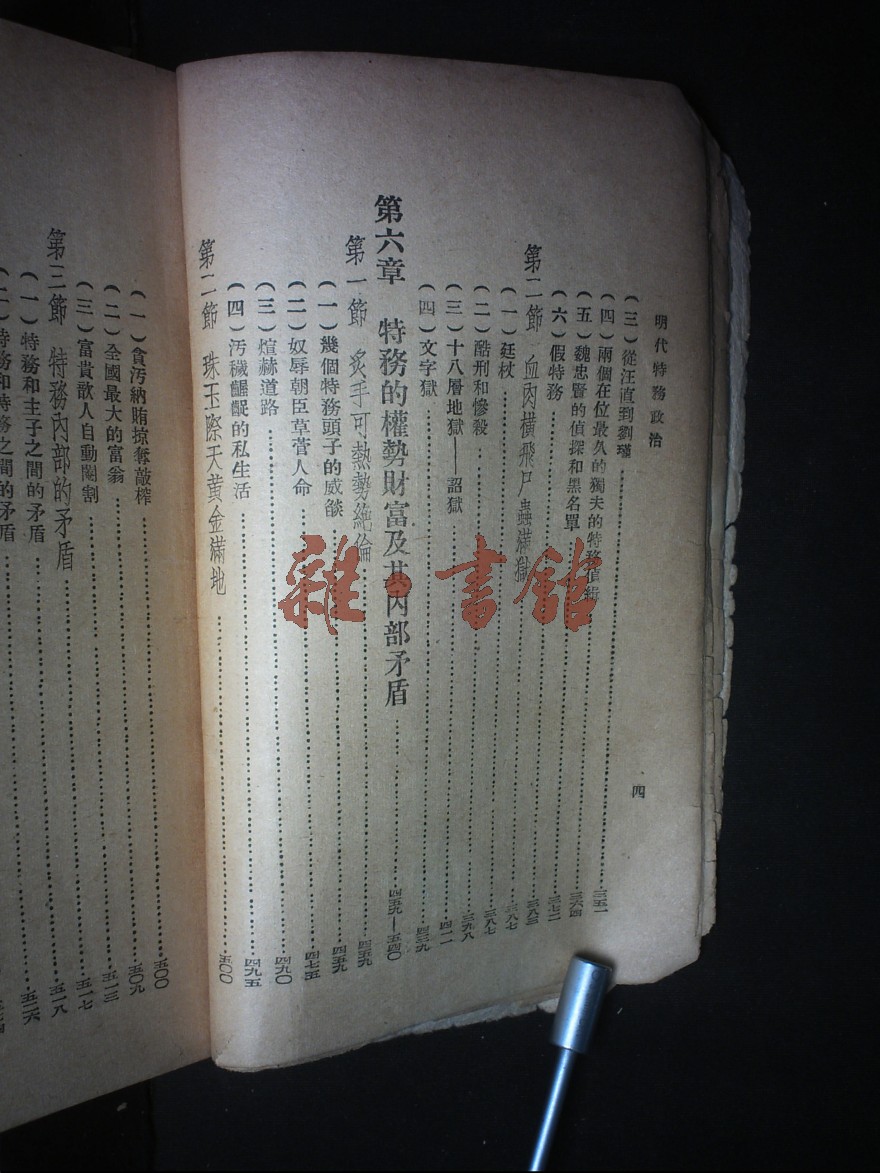 明代特務政治
四
(三)從汪直到劉瑾……三五一
(四)兩個在位最久的獨夫的特務偵緝……三六四
(五)魏忠賢的偵探和黑名單……三七二
(六)假特務……三八三
第二節 血肉橫飛尸蟲滿獄……三八七
(一)廷杖……三八七
(二)酷刑和慘殺……三九八
(三)十八層地獄——詔獄……四一一
(四)文字獄……四三九
第六章 特務的權勢財富及其內部矛盾……四五九—五四〇
第一節 炙手可熱勢絶倫……四五九
(一)幾個特務頭子的威燄……四五九
(二)奴辱朝臣草菅人命……四七五
(三)煊赫道路……四九〇
(四)污穢齷齪的私生活……四九五
第二節 珠玉際天黃金滿地……五〇〇
(一)貪污納賄掠奪敲榨……五〇〇
(二)全國最大的富翁……五〇九
(三)富貴歆人自動閹割……五一三
第三節 特務內部的矛盾……五一七
(一)特務和主子之間的矛盾……五一八
(二)特務和特務之間的矛盾……五二六
雜·書館